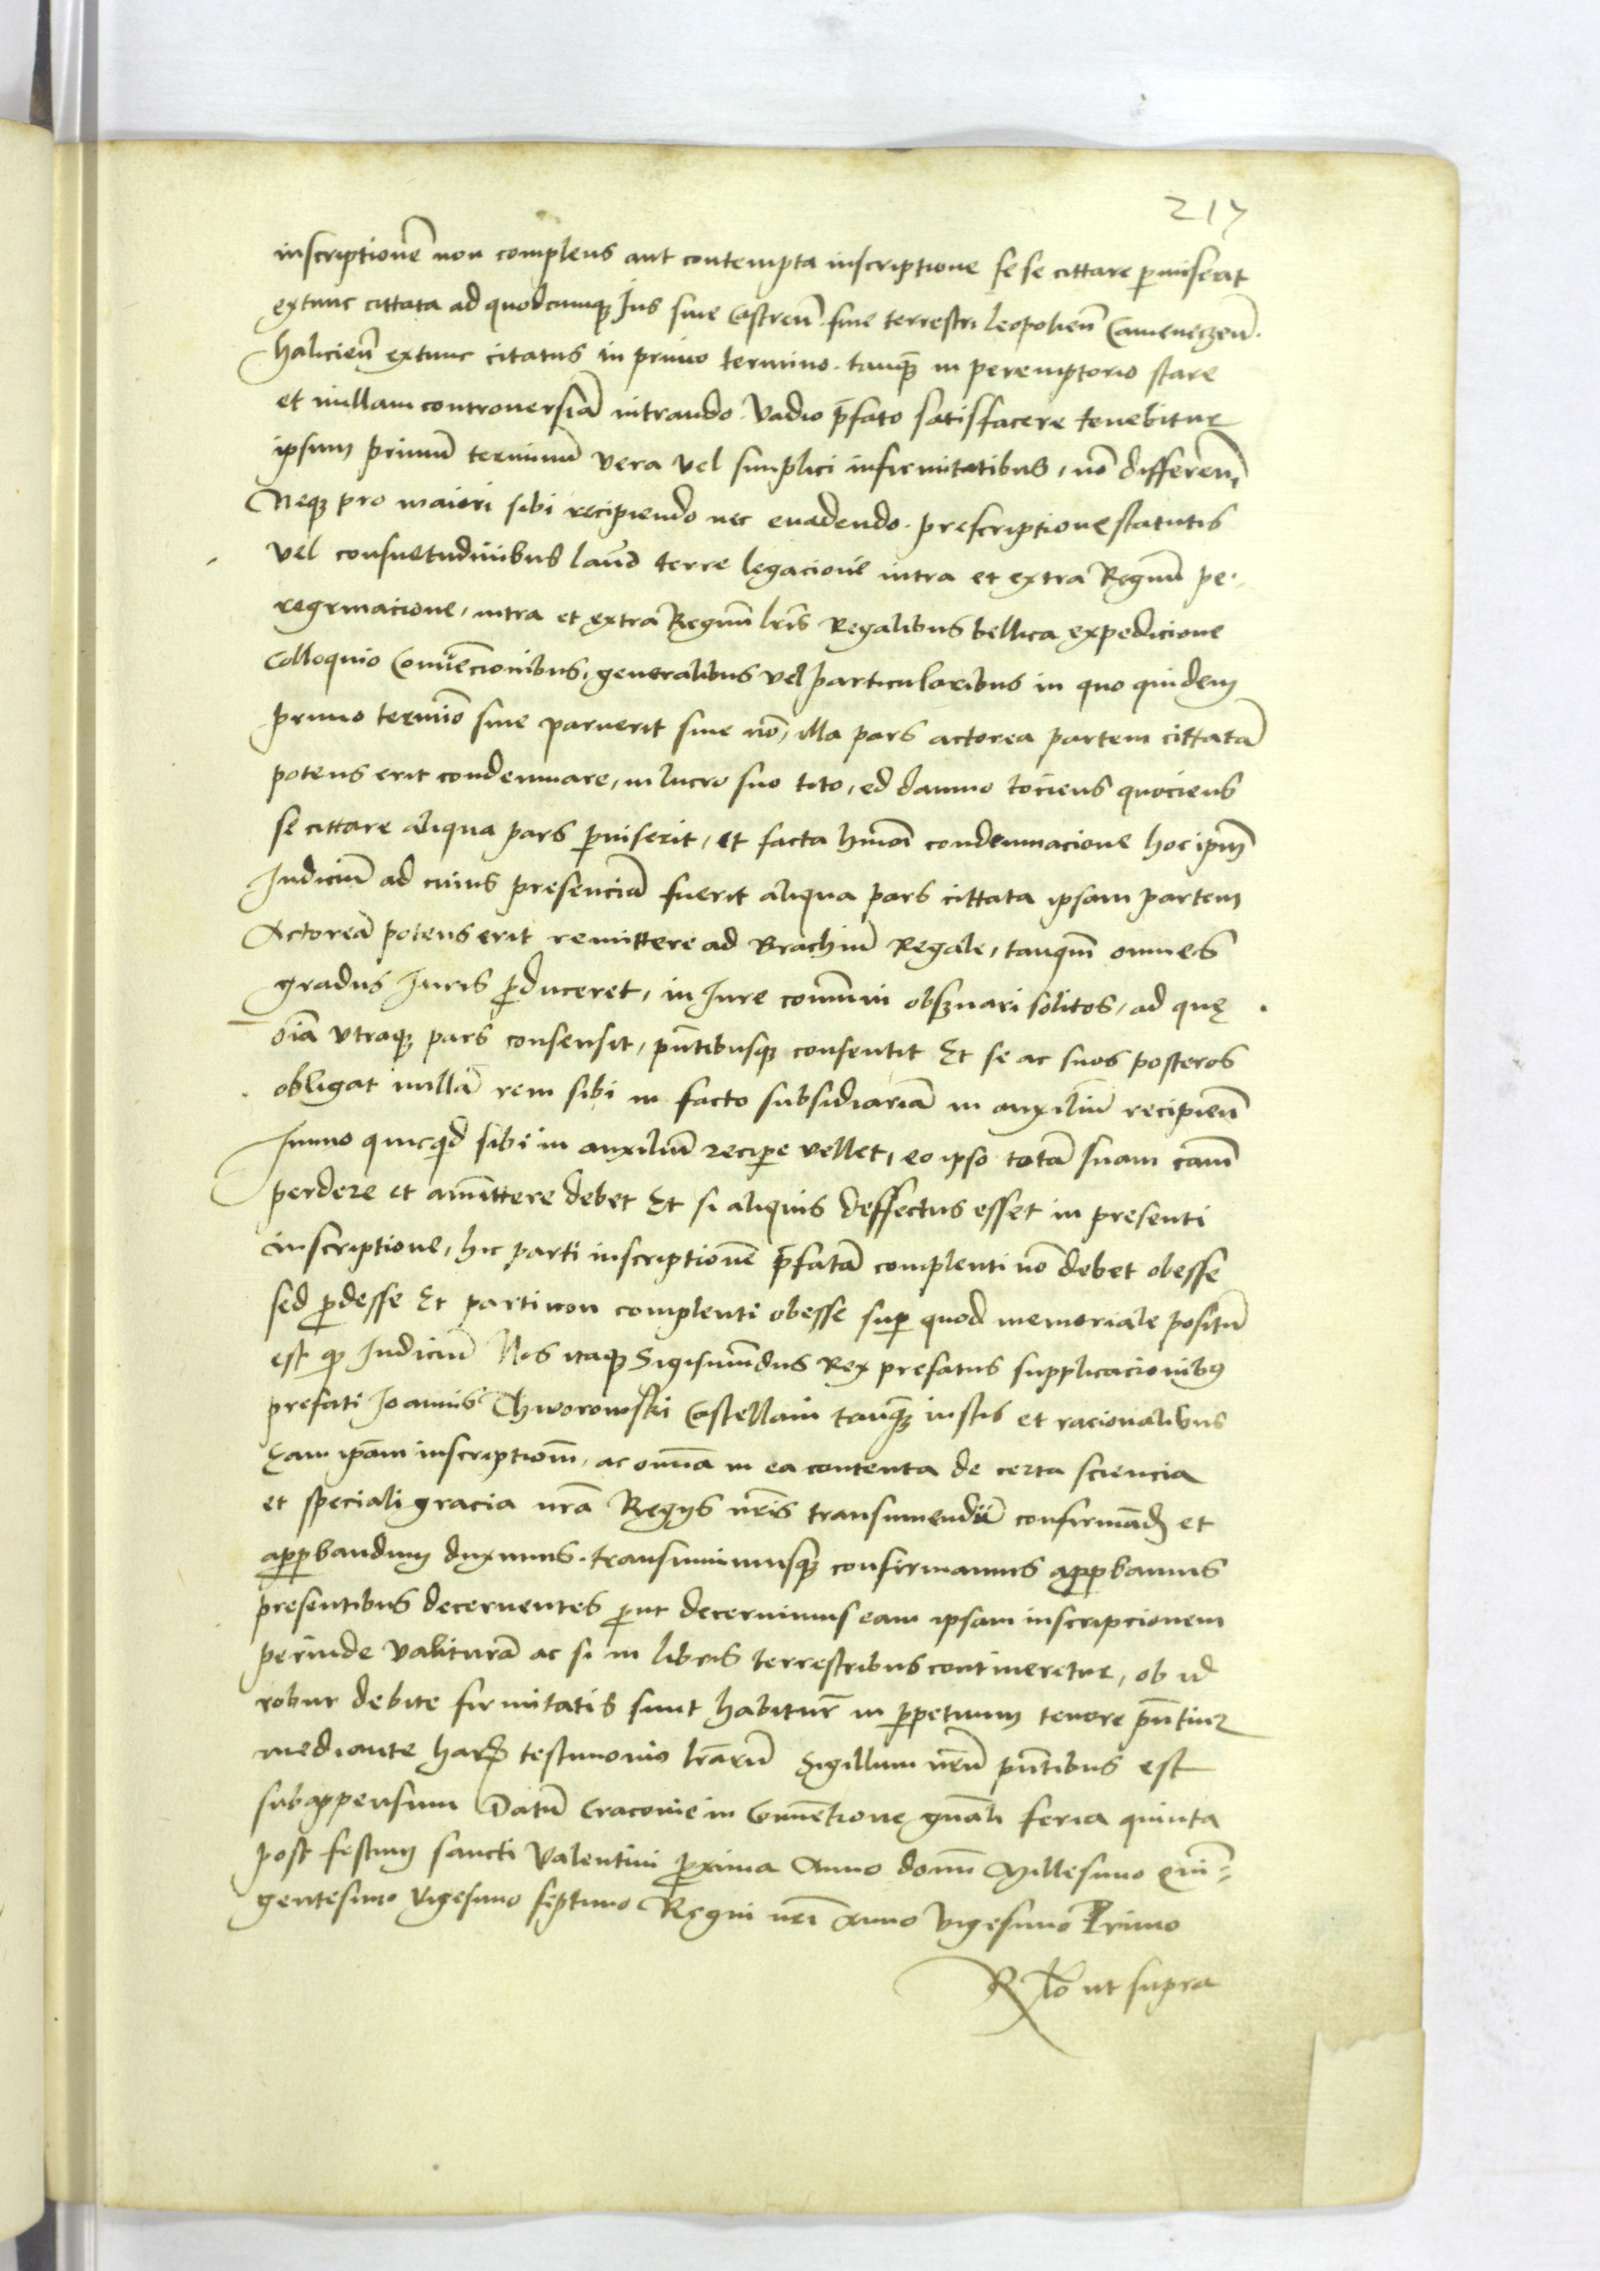 217
inscriptionẽ non complens aut contempta inscriptione se se cittare p̲miserit
extunc cittata ad quodcumq₃ Jus siue Castreñ siue terrestri leopolieñ Cameneczeñ.
halicieñ extunc citatus in primo termino. tanq̃₃ in peremptorio stare
et nullam controuersiã intrando. Vadio p̃fato satisfacere tenebitur
ipsum primũ terminũ vera vel simplici infirmitatibus, nõ differeñ
Neq₃ pro maiori sibi recipiendo nec euadendo. prescriptione statutis
vel consuetudinibus laũd terre legacione intra et extra Regnũ pe-
regrinacione, intra et extra Regnũ lr̃is Regalibus bellica expedicione
Colloquio Conuẽcionibus, generalibus vel particularibus in quo quidem
primo termiõ siue paruerit siue nõ, illa pars actorea partem cittatã
potens erit condemnare, in lucro suo toto, ed damno tociens quociens
se cittare aliqua pars p̲miserit, et facta hm̃oi condemnacione hoc ip̃m
Judiciũ ad cuius presenciã fuerit aliqua pars cittata ipsam partem
Actoreã potens erit remittere ad Brachiũ Regale, tanqm̃ omnes
gradus Juris p̲duceret, in Jure com̃uni obseruari solitos, ad quę
oĩa vtraq₃ pars consensit, pñtibusq₃ consentit Et se ac suos posteros
obligat nullã rem sibi in facto subsidiariã in auxiliũ recipieñ
Jmmo quicq̃d sibi in auxiliũ recip̲e vellet, eo ipso totã suam cãm
perdere et am̃ittere debet Et si aliquis deffectus esset in presenti
inscriptione, hic parti inscriptionẽ p̃fatã complenti nõ debet obesse
sed p̲desse Et parti non complenti obesse sup̲ quod memoriale positũ
est q₃ Judiciũ Nos itaq₃ Sigismũdus Rex prefatus supplicacionib₉
prefati Joannis Thworowski Castellani tanq̃₃ iustis et racionalibus
Eam ip̃am inscriptiõm, ac om̃ia in ea contenta de certa sciencia
et speciali gracia nr̃a Regijs nr̃is transumendũ confirmãd et
app̲bandum duximus. transumimusq₃ confirmamus app̲bamus
presentibus decernentes p̲ut decernimus eam ipsam inscripcionem
perinde valiturã ac si in libris terrestribus contineretur, ob id
robur debite firmitatis sunt habitur̃ in p̲petuum tenore pñtiur
mediante harũ testimonio lr̃arũ Sigillum nr̃ũ pñtibus est
subappensum Datũ Cracovie in Conuẽtione gñali feria quinta
post festum sancti Valentini p̲xima Anno domĩ Millesimo Quĩ-
gentesimo vigesimo septimo Regni nr̃i Anno vigesimo Primo
Rl̃o ut supra